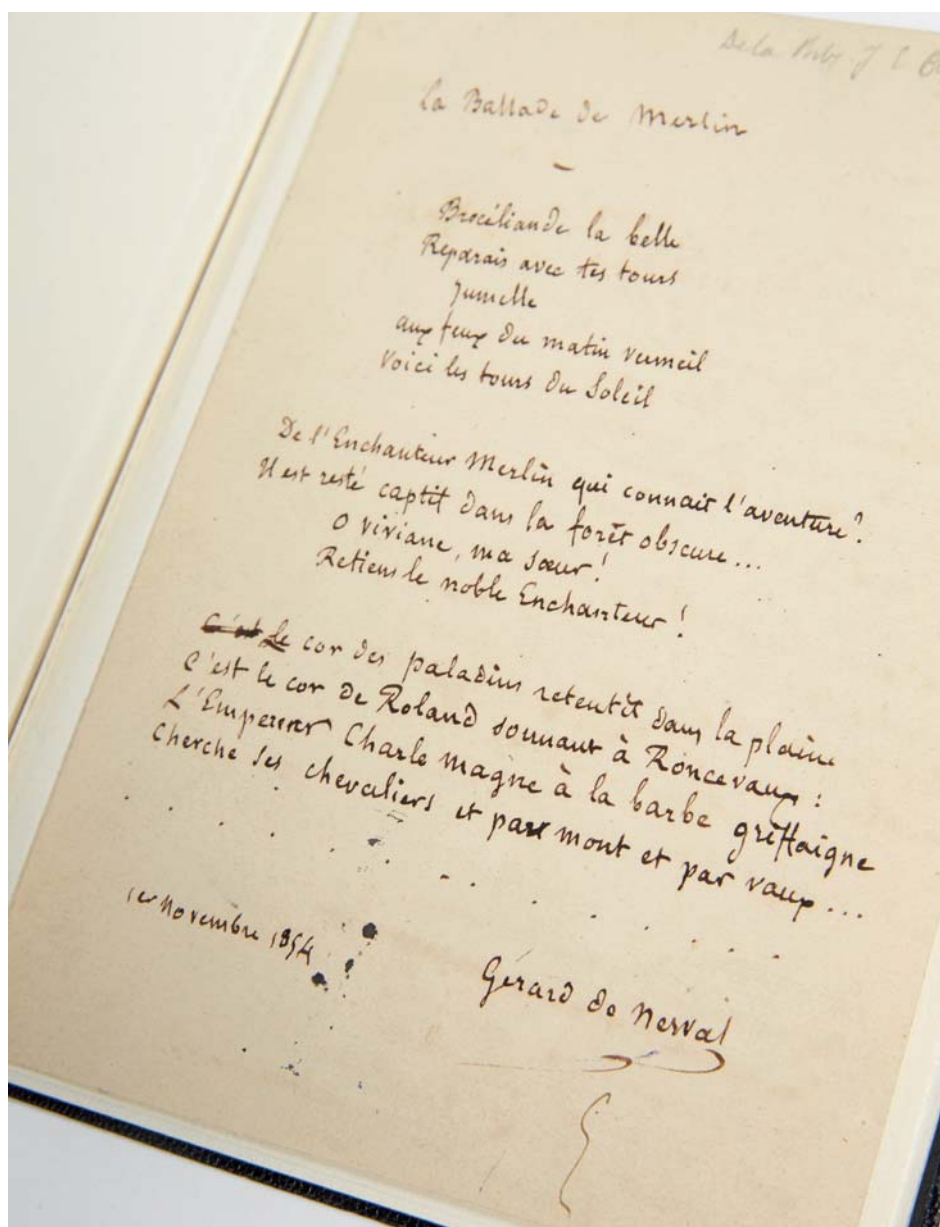 De la Bib J C
La Ballade de Merlin
Brocéliande la belle
Reparais avec tes tours
Jumelle
aux feux du matin vermeil
Voici les tours du Soleil
De l'Enchanteur Merlin qui connait l'aventure?
Il est resté captif dans la forêt obscure...
O viviane, ma sœur!
Retiens le noble Enchanteur!
C'est Le cor des paladins retentit dans la plaine
C'est le cor de Roland sonnant à Roncevaux:
L'Empereur Charle magne à la barbe griffaigne
Cherche ses chevaliers et par mont et par vaux...
1er novembre 1854
Gérard de Nerval